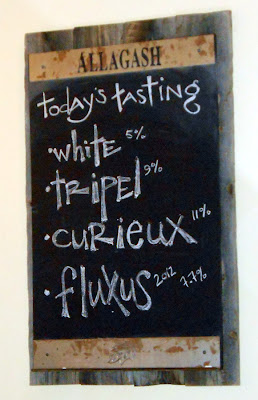 ALLAGASH
today's tasting
·white 5%
·tripel 9%
·curieux 11%
·fluxus 2012 7.7%